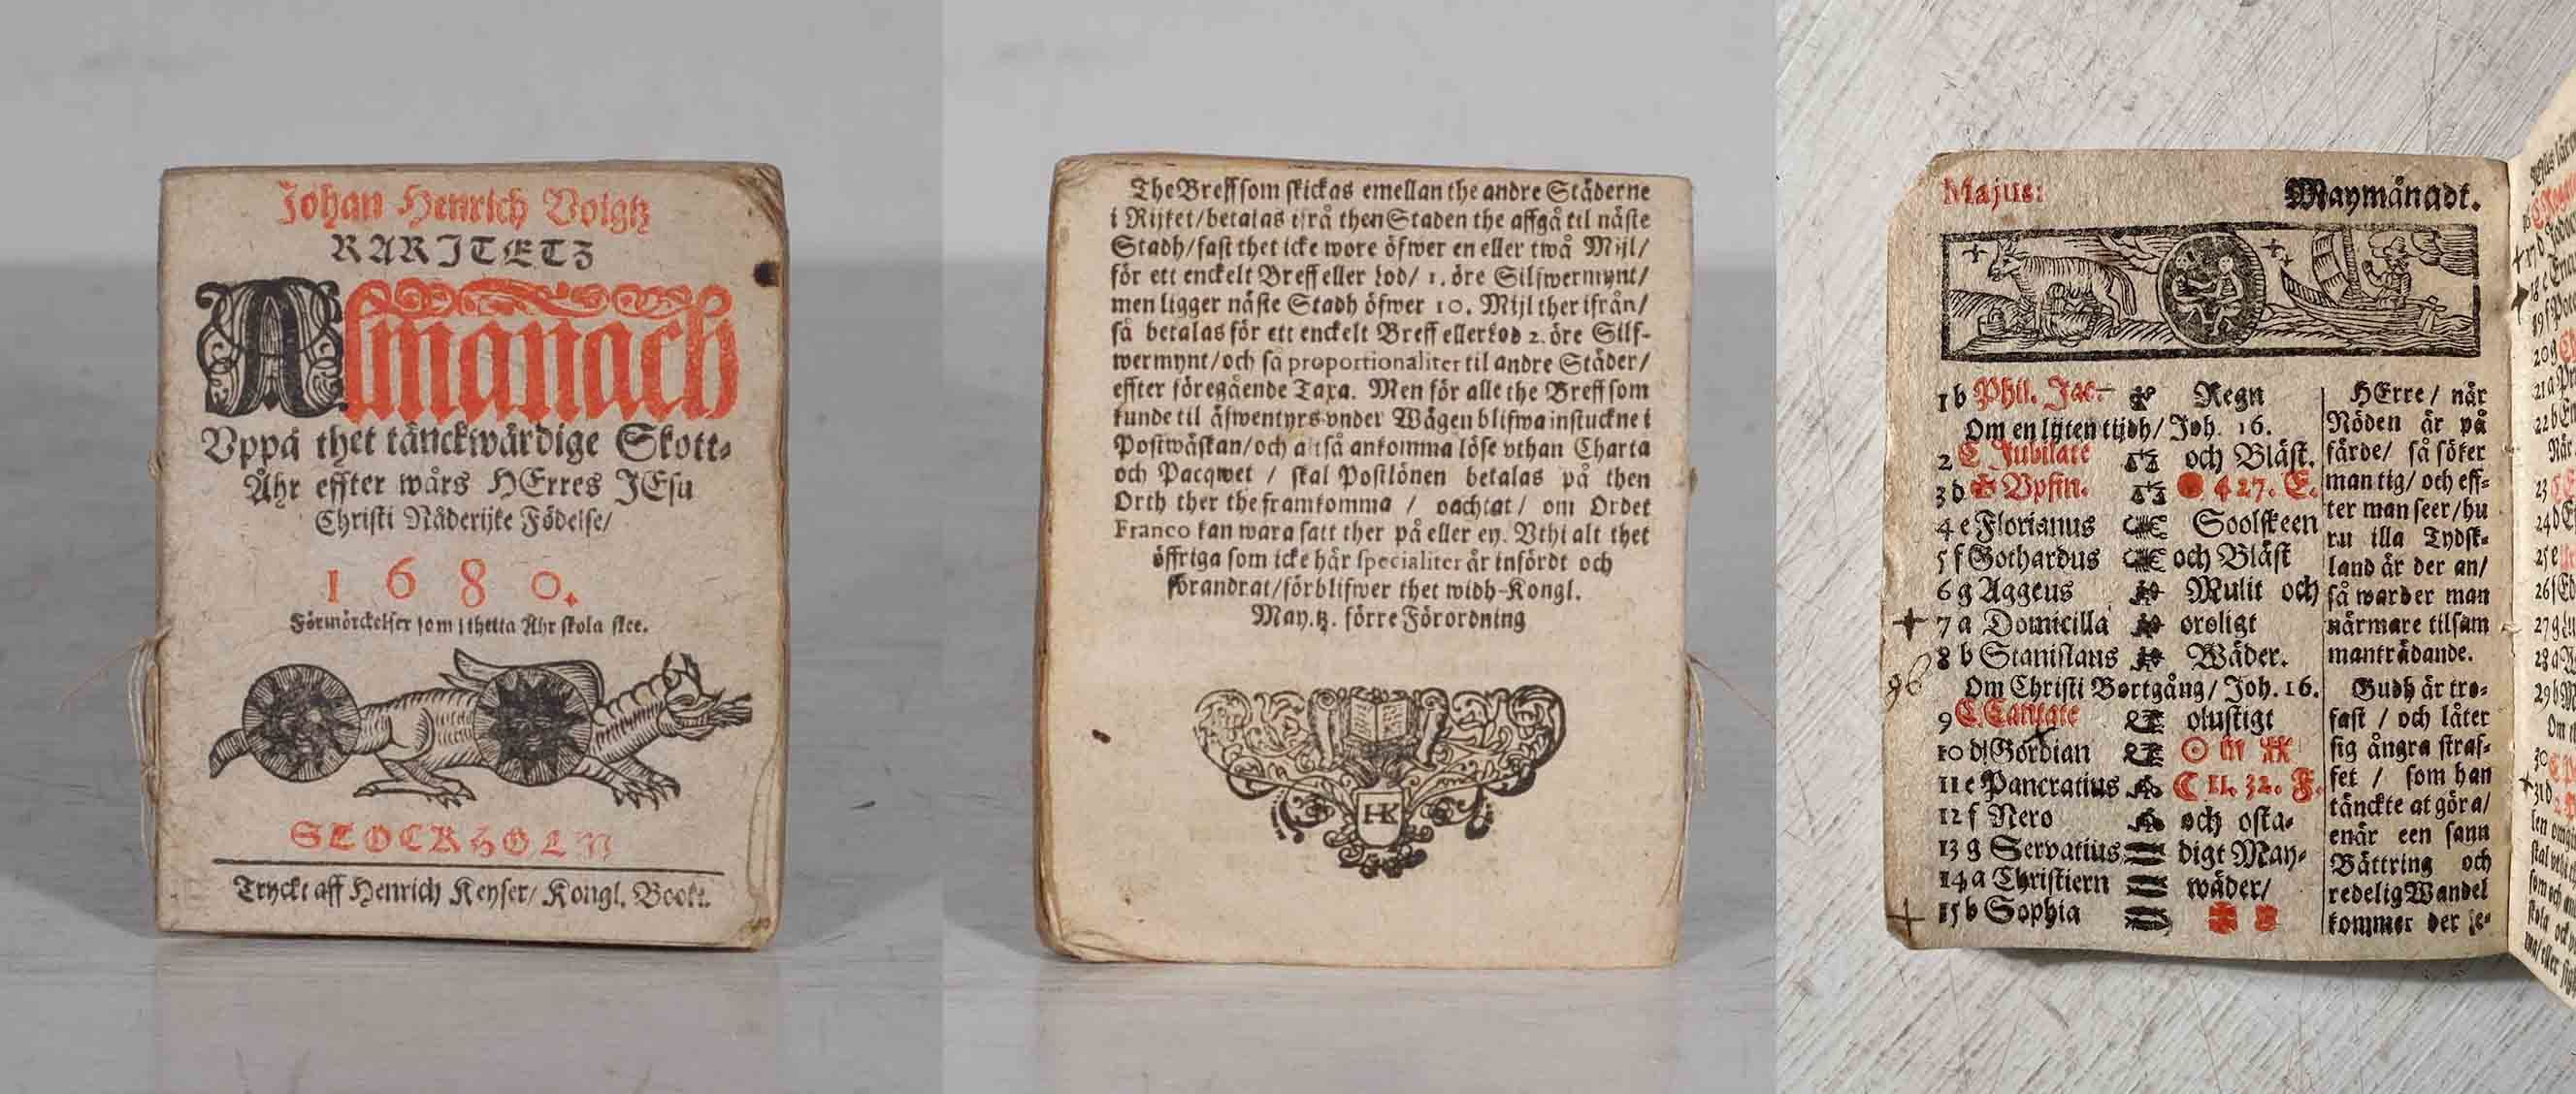 Johan Henrich Voigtz
RARITETZ
Almanach
Uppå thet tänckwärdige Skott-
Åhr effter wårs HErres JEsu
Christi Nåderijke Födelse/
1680.
Förmörckelser som i thetta Åhr skola skee.
STOCKHOLM
Tryckt aff Henrich Keyser/ Kongl. Bookt.
The Breff som skickas emellan the andre Städerne
i Rijket/betalas ifrå then Staden the affgå til näste
Stadh/fast thet icke wore öfwer en eller twå Mijl/
för ett enckelt Breff eller Lod/ 1. öre Silfwermynt/
men ligger näste Stadh öfwer 10. Mijl ther ifrån/
så betalas för ett enckelt Breff eller Lod 2. öre Silf-
wermynt/och så proportionaliter til andre Städer/
effter föregående Taxa. Men för alle the Breff som
kunde til äfwentyrs vnder Wägen blifwa instuckne i
Postwäskan/och altså ankomma löse vthan Charta
och Pacqwet / skal Postlönen betalas på then
Orth ther the framkomma / oachtat/ om Ordet
Franco kan wara satt ther på eller ey. Vthi alt thet
öffriga som icke här specialiter är infördt och
förandrat/förblifwer thet widh Kongl.
May.tz. förre Förordning
HK
Majus: Maymånadt.
1 b Phil. Jac. Regn
Om en lijten tijdh/ Joh. 16.
2 C Jubilate och Bläst.
3 d Vpfin. 4 27. E.
4 e Florianus Soolskeen
5 f Gothardus och Bläst
6 g Aggeus Mulit och
7 a Domicilla oroligt
8 b Stanislaus Wäder.
96
Om Christi Bortgång/ Joh. 16.
9 C Cantate olustigt
10 d Gordian ☉ in
11 e Pancratius 11. 32. F.
12 f Nero och osta-
13 g Servatius digt May-
14 a Christiern wäder/
15 b Sophia
HErre/ när
Nöden är på
färde/ så söker
man tig/ och eff-
ter man seer/hu
ru illa Tydsk-
land är der an/
så warder man
närmare tilsam
manträdande.
Gudh är tro-
fast / och låter
sig ångra straf-
fet / som han
tänckte at göra/
enär een sann
Bättring och
redelig Wandel
kommer der je-